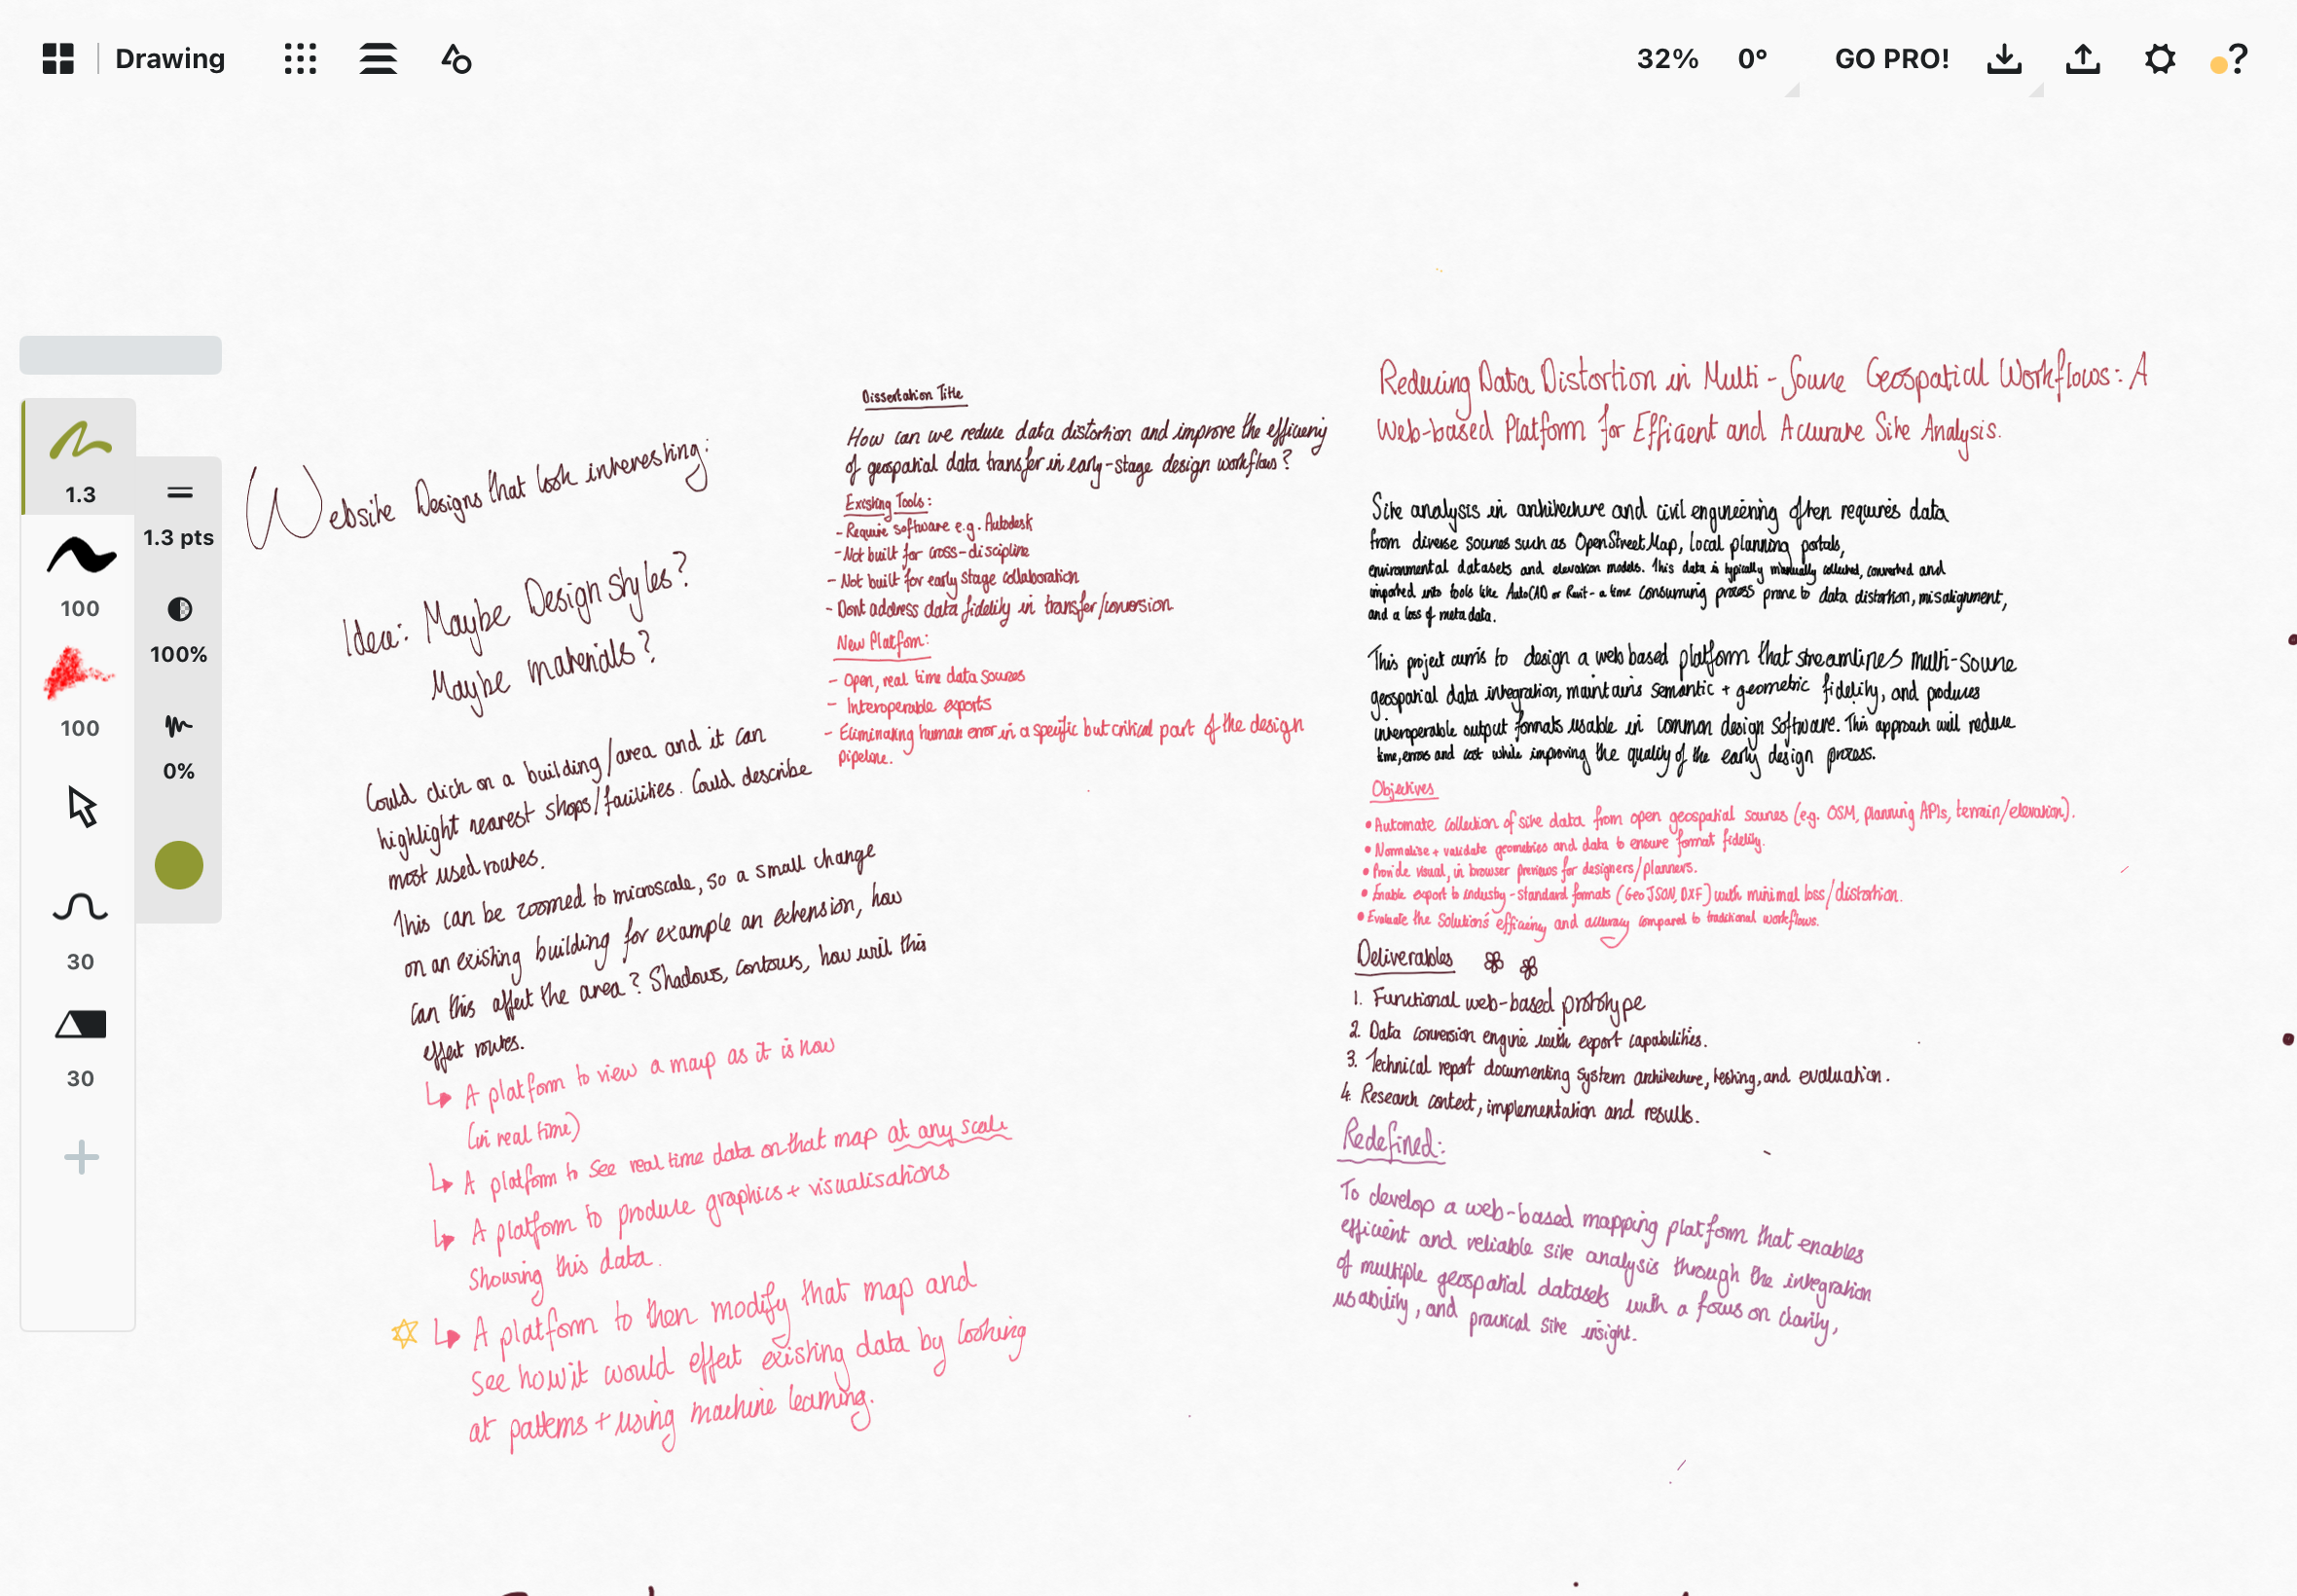 Drawing
32%
0°
GO PRO!
?
1.3
100
100
30
30
1.3 pts
100%
0%
Website Designs that look interesting:
Idea: Maybe Design styles?
Maybe materials?
Could click on a building/area and it can
highlight nearest shops/facilities. Could describe
most used routes.
This can be zoomed to microscale, so a small change
on an existing building for example an extension, how
can this affect the area? Shadows, contours, how will this
effect routes.
↳ A platform to view a map as it is now
(in real time)
↳ A platform to see real time data on that map at any scale
↳ A platform to produce graphics + visualisations
showing this data.
↳ A platform to then modify that map and
see how it would effect existing data by looking
at patterns + using machine learning.
Dissertation Title
How can we reduce data distortion and improve the efficieny
of geospatial data transfer in early-stage design workflows?
Existing Tools:
- Require software e.g. Autodesk
- Not built for cross-discipline
- Not built for early stage collaboration
- Dont address data fidelity in transfer/conversion
New Platform:
- Open, real time data sources
- Interoperable exports
- Eliminating human error in a specific but critical part of the design
pipeline.
Reducing Data Distortion in Multi-Source Geospatial Workflows: A
Web-based Platform for Efficient and Accurate Site Analysis.
Site analysis in architecture and civil engineering often requires data
from diverse sources such as OpenStreetMap, local planning portals,
environmental datasets and elevation models. This data is typically manually collected, converted and
imported into tools like AutoCAD or Revit - a time consuming process prone to data distortion, misalignment,
and a loss of meta data.
This project aims to design a web based platform that streamlines multi-source
geospatial data integration, maintains semantic + geometric fidelity, and produces
interoperable output formats usable in common design software. This approach will reduce
time, errors and cost while improving the quality of the early design process.
Objectives
• Automate collection of site data from open geospatial sources (e.g. OSM, planning APIs, terrain/elevation).
• Normalise + validate geometries and data to ensure format fidelity.
• Provide visual, in browser previews for designers/planners.
• Enable export to industry-standard formats (GeoJSON, DXF) with minimal loss/distortion.
• Evaluate the solution's efficiency and accuracy compared to traditional workflows.
Deliverables
1. Functional web-based prototype
2. Data conversion engine with export capabilities.
3. Technical report documenting system architecture, testing, and evaluation.
4. Research context, implementation and results.
Redefined:
To develop a web-based mapping platform that enables
efficient and reliable site analysis through the integration
of multiple geospatial datasets with a focus on clarity,
usability, and practical site insight.